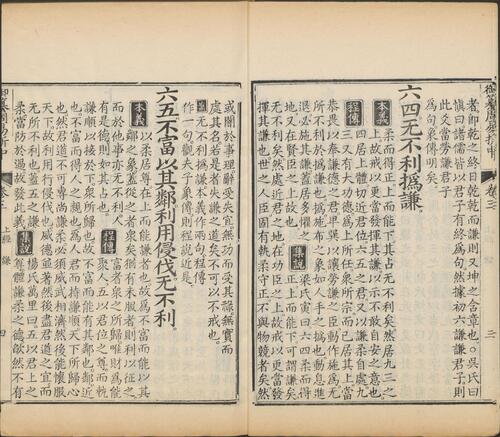 者即乾之終日乾乾而謙則又坤之含章也○吳氏曰
愼曰諸儒皆以君子有終爲句然據初六謙謙君子則
此爻當勞謙君子
爲句象傳明矣
六四无不利撝謙
本義 柔而得正上而能下其占无不利矣然居九三之
上故戒以更當發揮其謙以示不敢自安之意也
程傳 四居上體切近君位六五之君又以謙柔自處九
三又有大功德爲上所任衆所宗而已居其上當
恭畏以奉謙德之君卑巽以讓勞謙之臣動作施爲无
所不利於撝謙也撝施布之象如人手之撝也動息進
退必施其謙蓋居多懼之
地又在賢臣之上故也
集說 梁氏寅曰六四柔而得
正上而能下可謂謙矣
然无功而居處近君之地在功臣之上故戒以更當發
揮其謙也世之人臣固有執柔守正不與物競者矣然
或闇於事理辭受之宜無功而受其祿無實而
處其名若是者失謙之道矣不可以不戒也○
案 无不利撝謙本義作兩句程傳
作一句觀夫子象傳則程說近是
六五不富以其鄰利用侵伐无不利
本義 以柔居尊在上而能謙者也故爲不富而能以其
鄰之象蓋從之者衆矣猶有未服者則利以征之
而於他事亦无不利人
有是德則如其占也
程傳 富者衆之所歸唯財爲能
聚人五以君位之尊而執
謙順以接於下衆所歸也故不富而能有其鄰也鄰近
也不富而得人之親也爲人君而持謙順天下所歸心
也然君道不可專尚謙柔必須威武相濟然後能懷服
天下故利用行侵伐也威德並著然後盡君道之宜而
无所不利也蓋五之謙
柔當防於過故發此義
集說 楊氏萬里曰五以君上之
尊體謙柔之德欿然不有
御纂周易折中
卷三
上經 謙
三
四